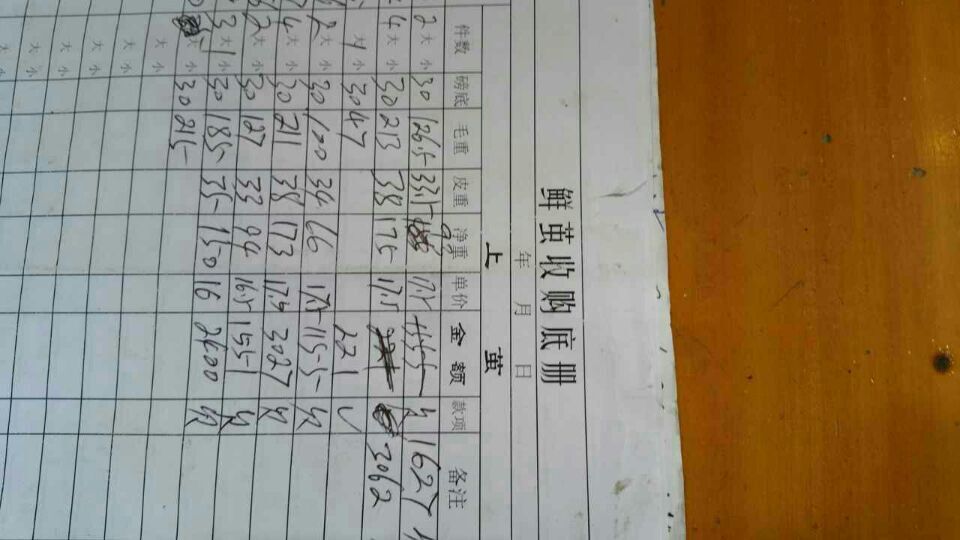 鲜茧收购底册
年 月 日
上 茧
件数 磅底 毛重 皮重 净重 单价 金额 款项 备注
2 大 小 30 126.5 33.5 17.5 1627
4 大 小 30 213 38 175 17.5 3062
大 小 30 47 221 ✓
2 大 小 30 100 34 66 17.5 1155
4 大 小 30 211 38 173 17.5 3027
2 大 小 30 127 33 94 16.5 1551
3 大 小 30 185 35 150 16 2400
大 小 30 215
大 小
大 小
大 小
大 小
大 小